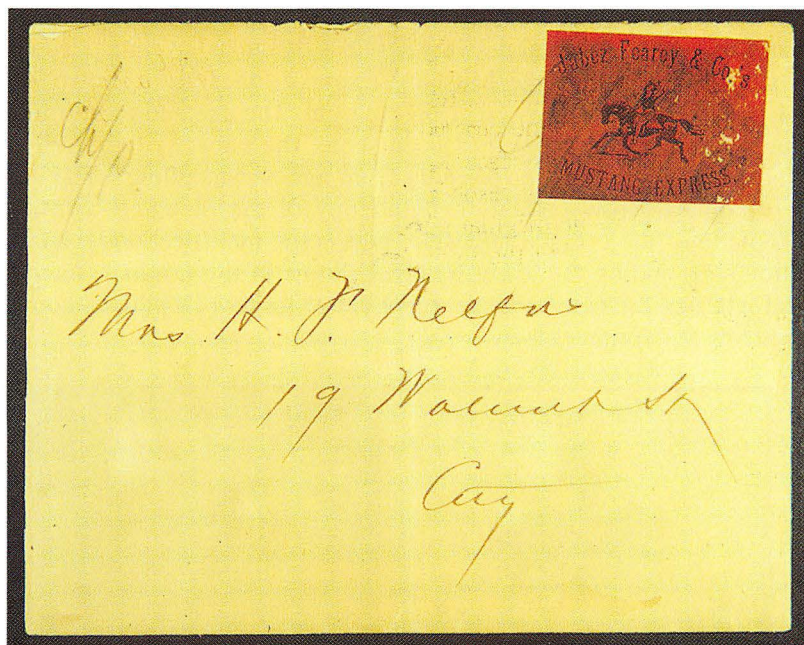 Jabez Fearey & Co's
MUSTANG EXPRESS.
Mrs. H. F.
19 Walnut St
City